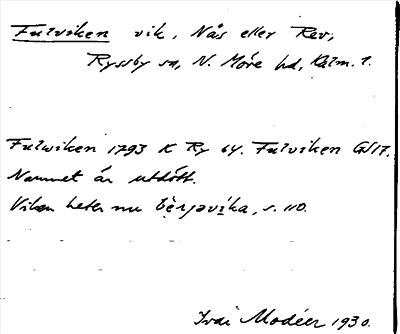 Fulviken vik, Nås eller Rev,
Ryssby sn, N. Möre hd, Kalm. l.
Fulwiken 1793 K Ry 64. Fulviken GS17.
Namnet är utdött.
Viken heter nu bèrjavika, s. 110.
Ivar Modéer 1930.